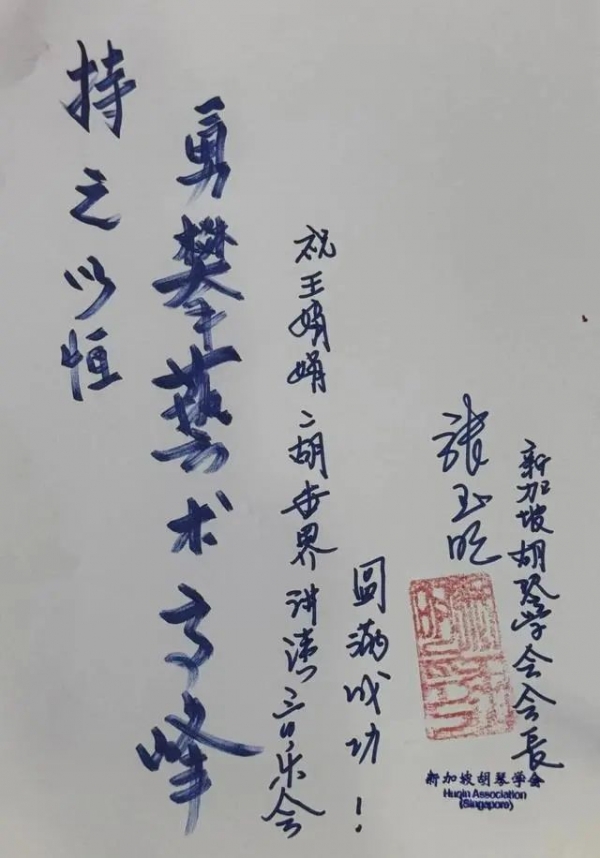 持之以恒
勇攀藝术高峰
祝王娟娟二胡世界讲演音乐会
圆满成功！
張玉明
新加坡胡琴学会会長
新加坡胡琴学会
Huqin Association
(Singapore)